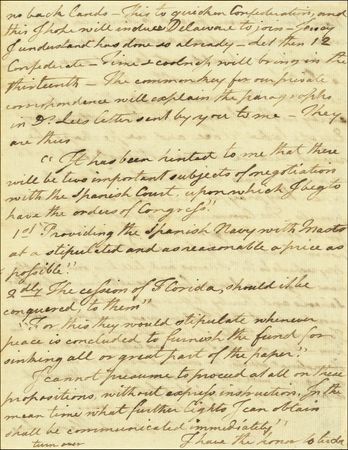 no back Lands — This to quicken Confederation, and
this I hope will induce Delaware to join — Jersey
I understand has done so already — let then 12
Confederate — Time & coolness will bring in the
thirteenth — The common key for our private
correspondence will explain the paragraphs
in Dr. Lees letter sent by you to me — They
are thus
"It has been hinted to me that there
will be two important subjects of negotiation
with the Spanish Court, upon which I beg to
have the orders of Congress".
1st Providing the Spanish Navy with Masts
at a stipulated and as reasonable a price as
possible."
2dly The cession of Florida, should it be
conquered, to them"
"For this they would stipulate whenever
peace is concluded to furnish the fund for
sinking all or great part of the paper."
"I cannot presume to proceed at all on these
propositions, without express instruction. In the
mean time what further lights I can obtain
shall be communicated immediately"
turn over I have the honor to be &a